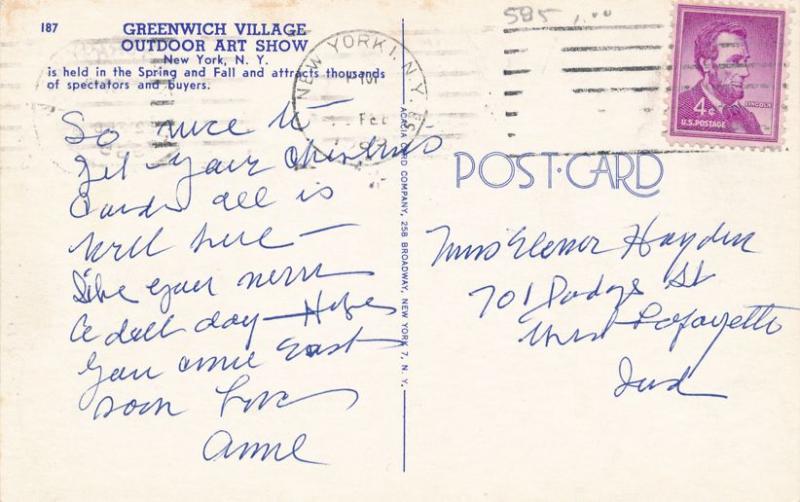 187
GREENWICH VILLAGE
OUTDOOR ART SHOW
New York, N. Y.
is held in the Spring and Fall and attracts thousands
of spectators and buyers.
So nice to —
get your Christmas
Card all is
well here —
like your
a dull day — Hope
you come East
soon Love
Anne
ACACIA CARD COMPANY, 258 BROADWAY, NEW YORK 7, N. Y.
NEW YORK 1, N.Y.
FEB
585 1.00
4¢
LINCOLN
U.S. POSTAGE
POST-CARD
Miss Eleanor Hayden
701 Dodge St
West Lafayette
Ind